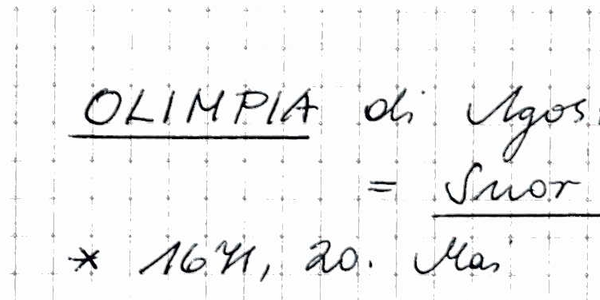 OLIMPIA di Agos
= Suor
* 1671, 20. Mai